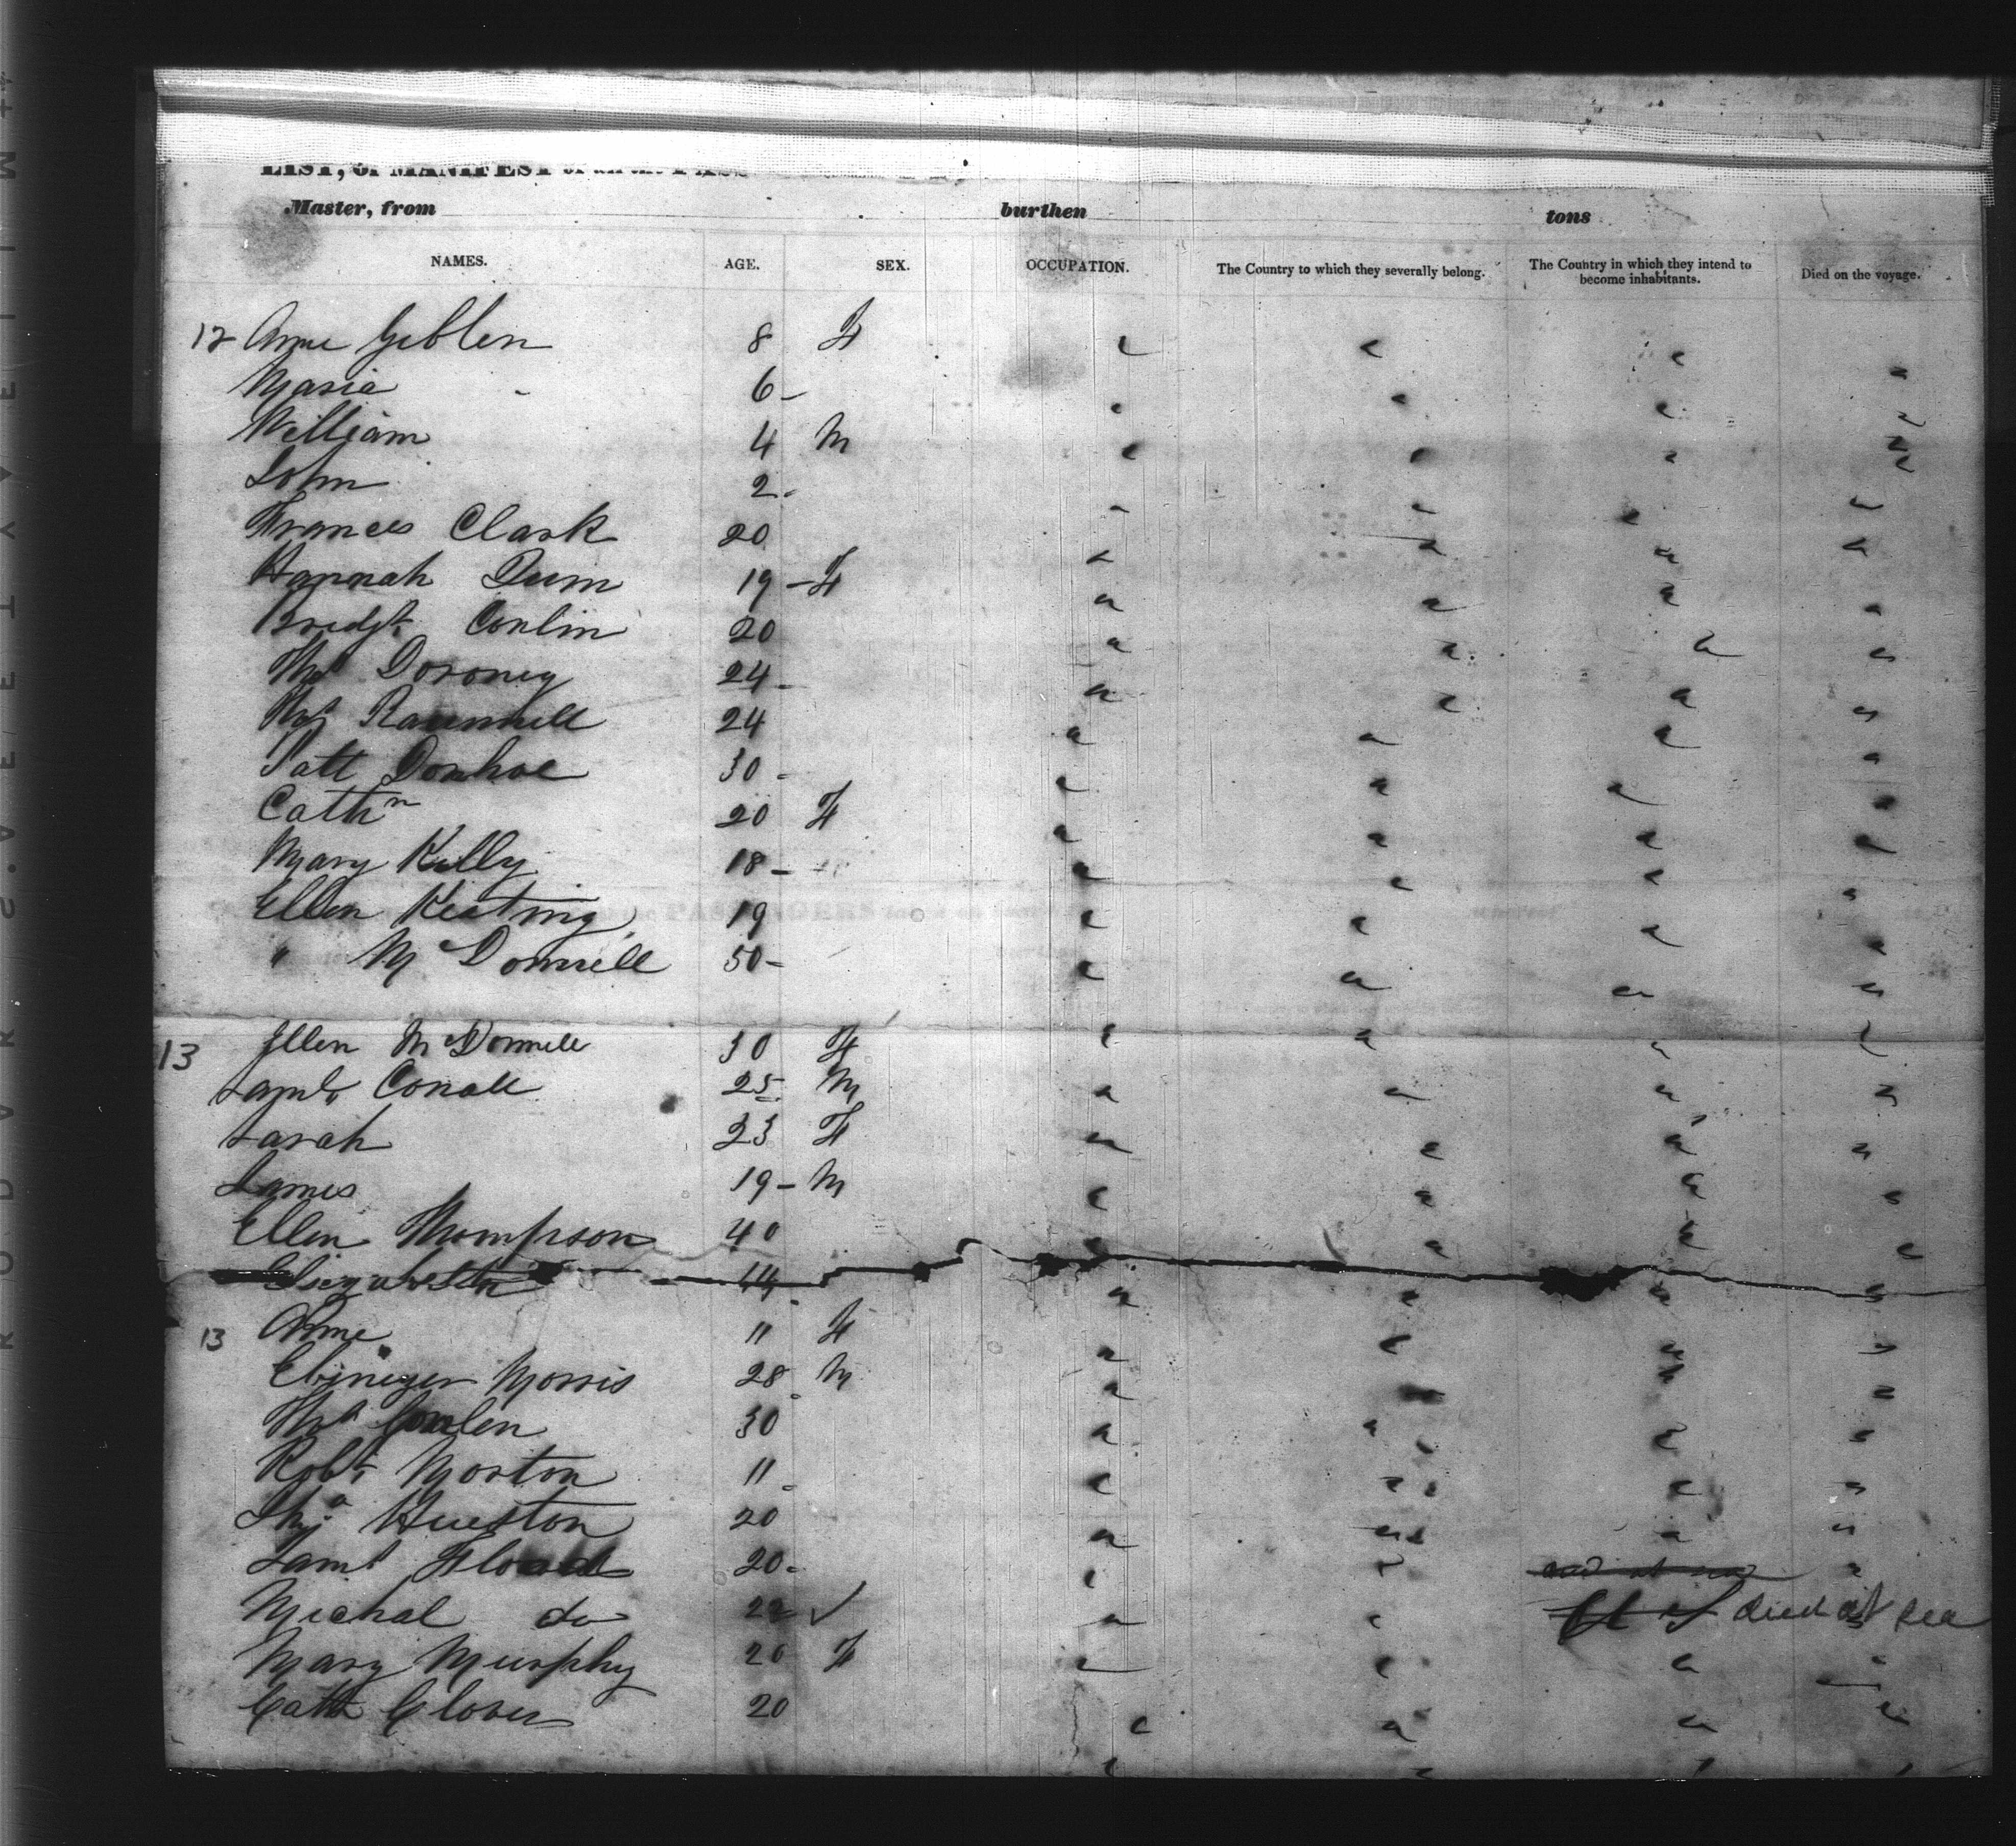 LIST, or MANIFEST of all the PASS
Master, from burthen tons
NAMES. AGE. SEX. OCCUPATION. The Country to which they severally belong. The Country in which they intend to become inhabitants. Died on the voyage.
12 Anne Geblen 8 F
Maria 6
William 4 M
John 2
Frances Clark 20
Hannah Dunn 19 F
Bridgt Conlin 20
Doroney 24
24
Patt Donhoe 30
Cathn 20 F
Mary Kelly 18
Ellen Keating 19
" McDonnell 50
13 Ellen McDonnell 30 F
Saml Conall 25 M
Sarah 23 F
James 19 M
Ellen Thompson 40
Elizabeth 14
13 Anne 11 F
Ebinezer Morris 28 M
Conlen 30
Robt Morton 11
Hueston 20
Saml Flood 20
Michal do 22 ✓ died at sea
Mary Murphy 20 F
Cath Glover 20